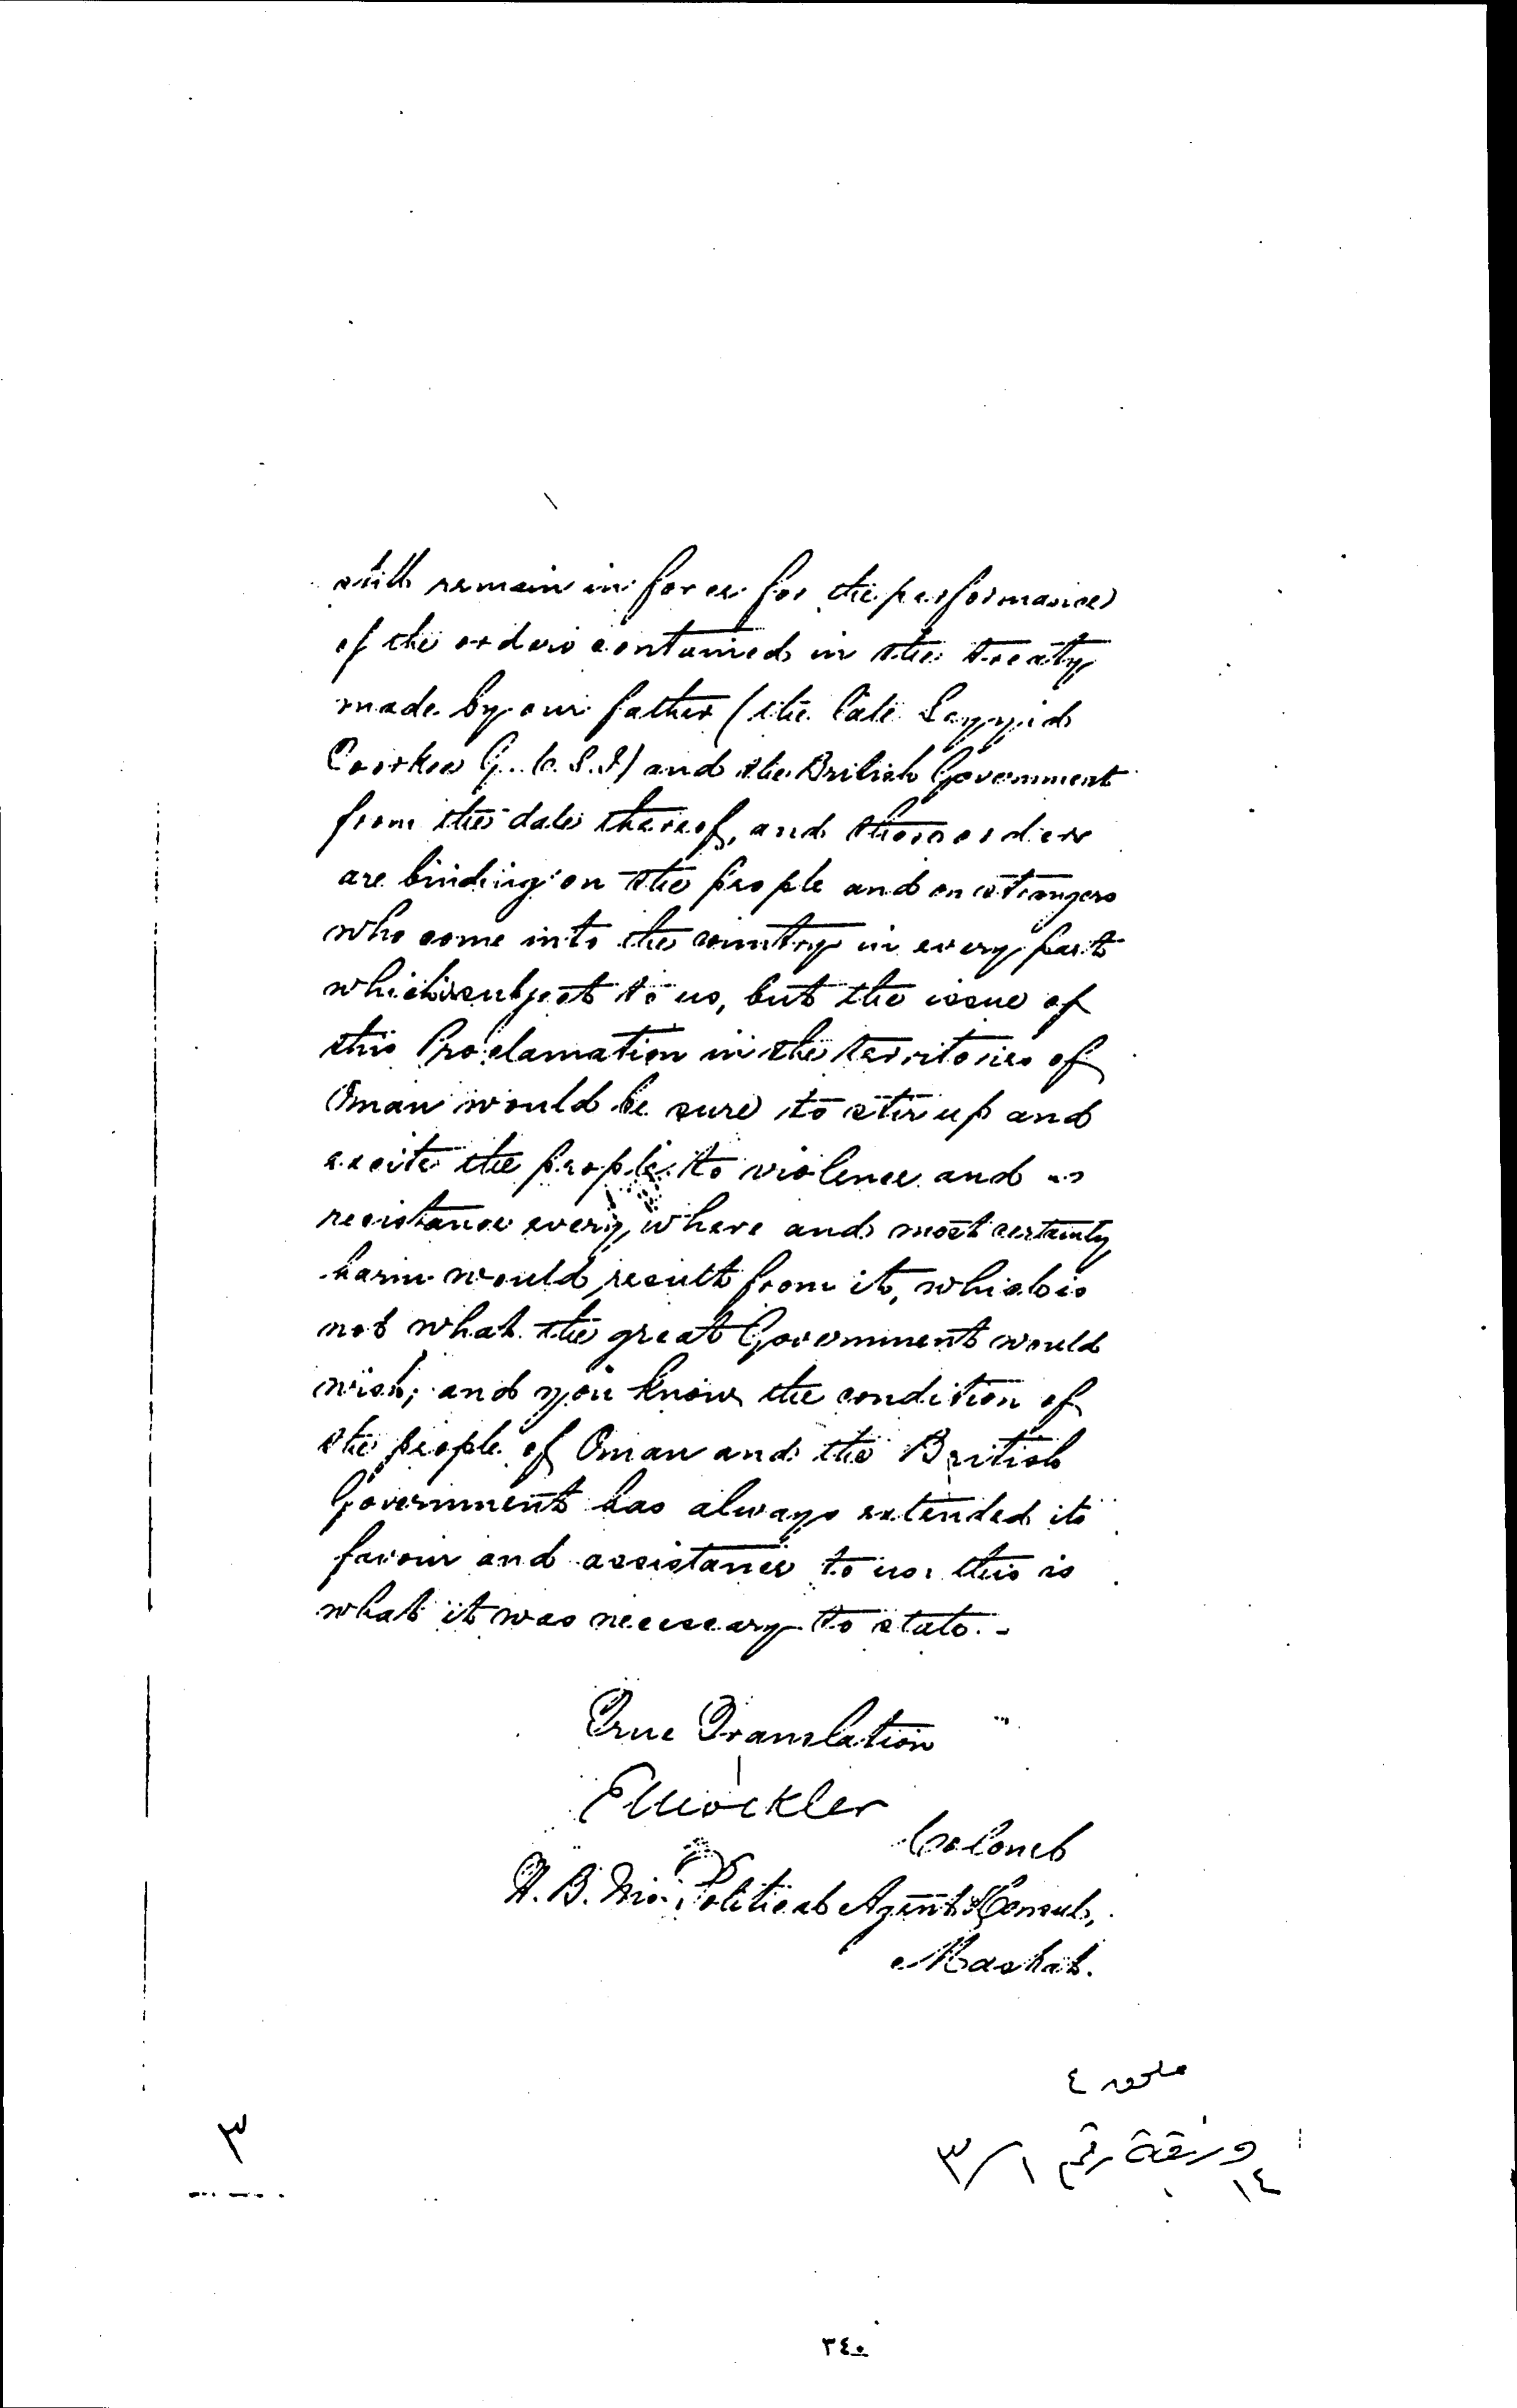 still remain in force for the performance
of the orders contained in the treaty
made by our father (the late Seyyid
Toorkee G.C.S.I) and the British Government
from the date thereof, and those orders
are binding on the people and on strangers
who come into the country in every part
which is subject to us, but the issue of
this Proclamation in the territories of
Oman would be sure to stir up and
excite the people to violence and
resistance every where and most certainly
harm would result from it, which is
not what the great Government would
wish; and you know the condition of
the people of Oman and the British
Government has always extended its
favour and assistance to us. this is
what it was necessary to state.-
True Translation
E Mockler
Colonel
H. B. M's. Political Agent & Consul,
Maskat.
ملحق ٤
٣
وثيقة رقم ٣/١
١٤
٣٤٠